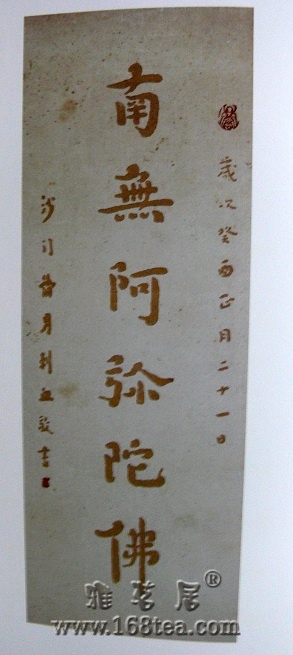 歲次癸酉正月二十一日
南無阿弥陀佛
沙门刺血敬書
雅茗居®
www.168tea.com